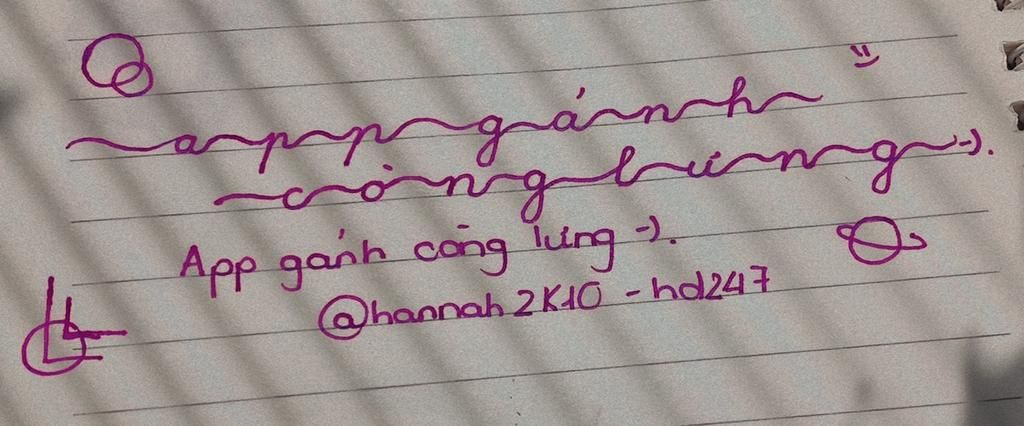 app gánh
còng lưng :-).
App gánh còng lưng :-).
@hannah2K10-hd247